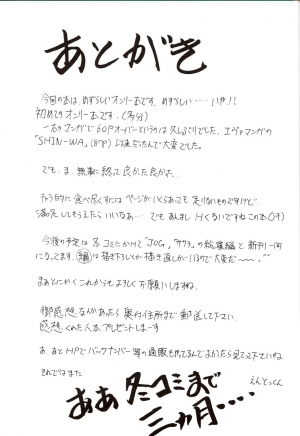 あとがき
今回の本は、めずらしいオンリー本です。めずらしい……いや!!
初めてのオンリー本です。(多分)
一本のマンガで60Pオーバーというのは久しぶりでした。エヴァマンガの
「SHIN-WA」(87P)以来だったんで大変でした。
でも、ま、無事に終って良かた良かた。
キャラ的に食べ尽くすにはページがいくらあっても足りないものですけど、
満足してもらえたらいいなぁ… でもあんまし Hくないですねこの本(汗)
今後の予定は冬コミたかHで「JOG」「サクラ」の総集編と新刊一冊
になってます。編は描き下ろしとか描き直しが
まぁとにかくこれからもよろしくお願いしますね。
御感想なんかあったら奥付住所まで郵送して下さい
感想くれた人本プレゼントしまーす
あ、あとHPでバックナンバー等の通販もやってるんでよかったら見て下さいね
それでわまた
えんとっくん
ああ冬コミまで
三ヵ月‥‥